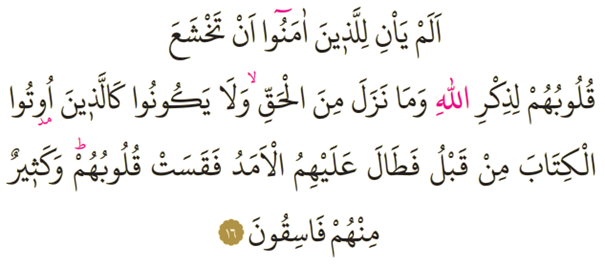 اَلَمْ يَاْنِ لِلَّذ۪ينَ اٰمَنُٓوا اَنْ تَخْشَعَ
قُلُوبُهُمْ لِذِكْرِ اللّٰهِ وَمَا نَزَلَ مِنَ الْحَقِّۙ وَلَا يَكُونُوا كَالَّذ۪ينَ اُو۫تُوا
الْكِتَابَ مِنْ قَبْلُ فَطَالَ عَلَيْهِمُ الْاَمَدُ فَقَسَتْ قُلُوبُهُمْۜ وَكَث۪يرٌ
مِنْهُمْ فَاسِقُونَ ١٦